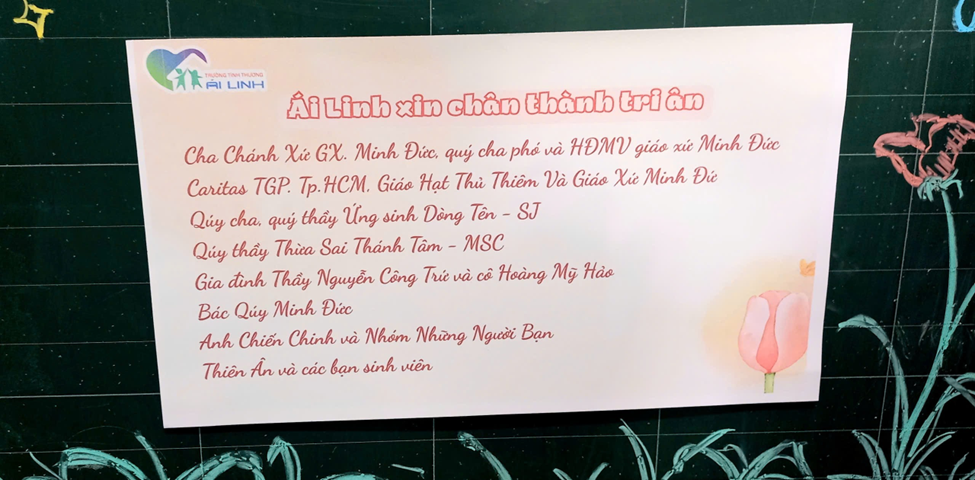 TRƯỜNG TÌNH THƯƠNG
ÁI LINH
Ái Linh xin chân thành tri ân
Cha Chánh Xứ GX. Minh Đức, quý cha phó và HĐMV giáo xứ Minh Đức
Caritas TGP. Tp.HCM, Giáo Hạt Thủ Thiêm Và Giáo Xứ Minh Đứ
Qúy cha, quý thầy Ứng sinh Dòng Tên - SJ
Qúy thầy Thừa Sai Thánh Tâm - MSC
Gia đình Thầy Nguyễn Công Trứ và cô Hoàng Mỹ Hảo
Bác Qúy Minh Đức
Anh Chiến Chinh và Nhóm Những Người Bạn
Thiên Ân và các bạn sinh viên